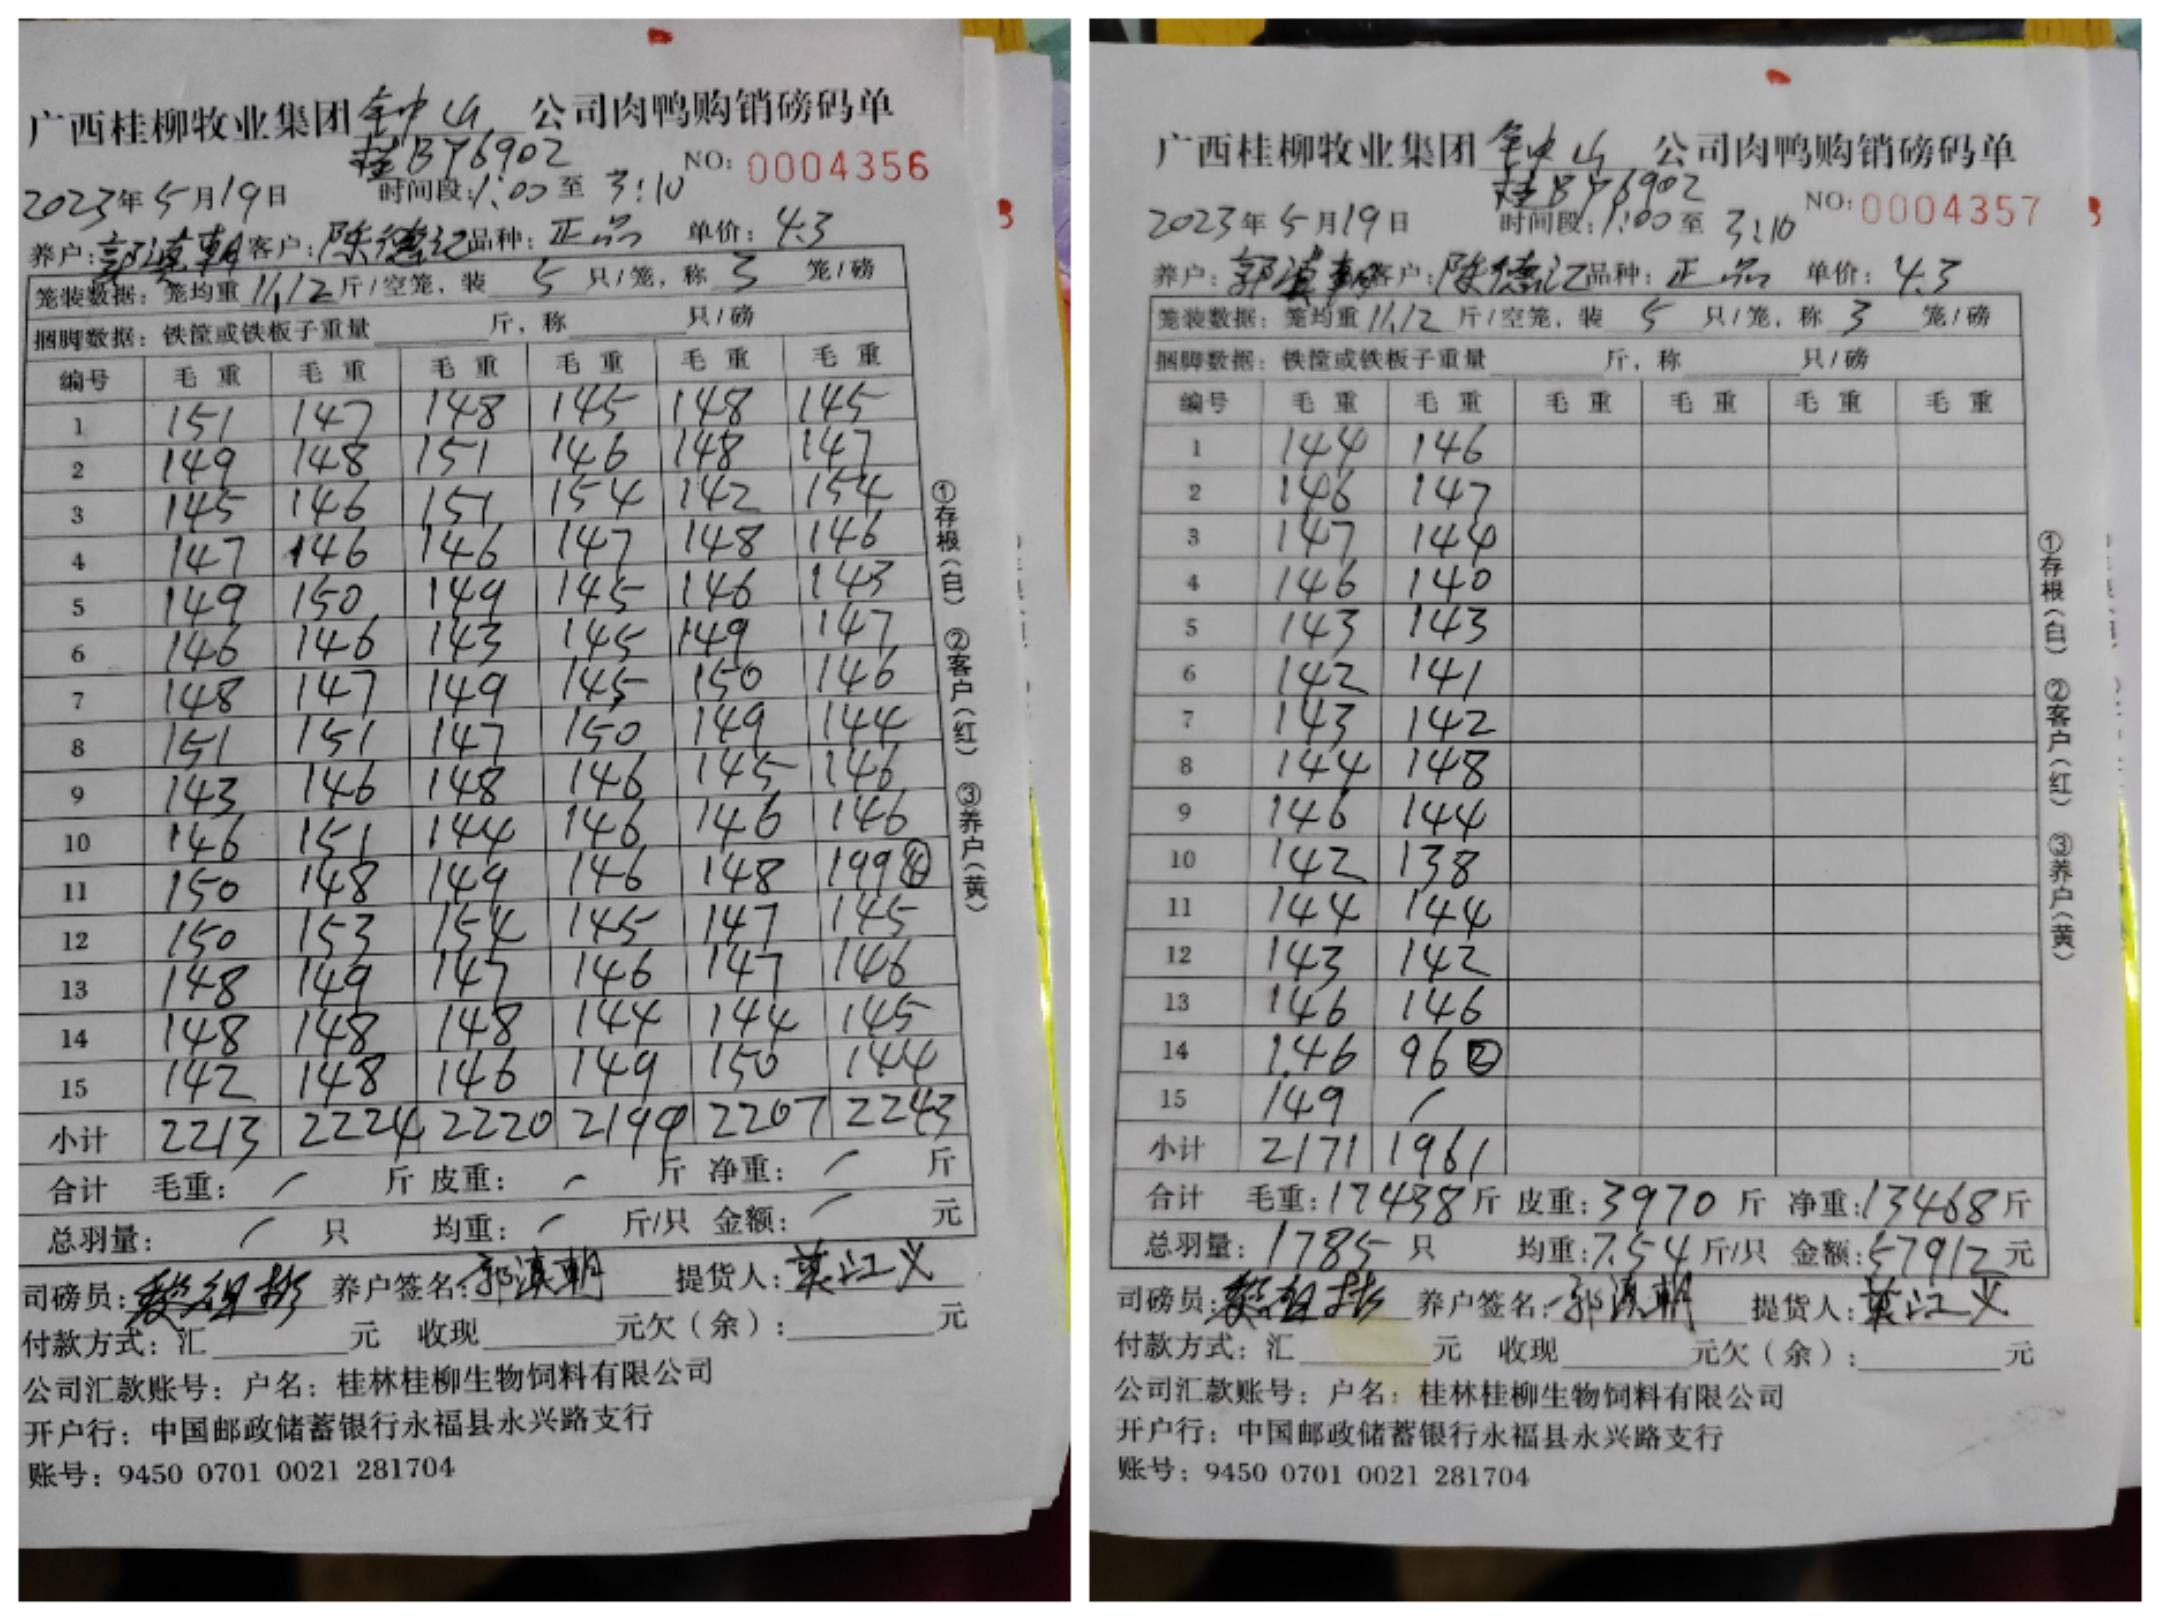 广西桂柳牧业集团钟山公司肉鸭购销磅码单
桂BY6902
NO: 0004356
2023年5月19日 时间段:1:00至3:10
养户:郭滇朝 客户:陈德记 品种:正品 单价:4.3
笼装数据:笼均重11.12斤/空笼,装5只/笼,称3笼/磅
捆脚数据:铁筐或铁板子重量 斤,称 只/磅
编号 毛重 毛重 毛重 毛重 毛重 毛重
1 151 147 148 145 148 145
2 149 148 151 146 148 147
3 145 146 151 154 142 154
4 147 146 146 147 148 146
5 149 150 149 145 146 143
6 146 146 143 145 149 147
7 148 147 149 145 150 146
8 151 151 147 150 149 144
9 143 146 148 146 145 146
10 146 151 144 146 146 146
11 150 148 149 146 148 199④
12 150 153 154 145 147 145
13 148 149 147 146 147 146
14 148 148 148 144 144 145
15 142 148 146 149 150 144
小计 2213 2224 2220 2199 2207 2243
合计 毛重:/ 斤 皮重:/ 斤 净重:/ 斤
总羽量:/ 只 均重:/ 斤/只 金额:/ 元
司磅员: 养户签名:郭滇朝 提货人:莫江义
付款方式:汇 元 收现 元欠(余): 元
公司汇款账号:户名:桂林桂柳生物饲料有限公司
开户行:中国邮政储蓄银行永福县永兴路支行
账号:9450 0701 0021 281704
①存根(白) ②客户(红) ③养户(黄)
广西桂柳牧业集团钟山公司肉鸭购销磅码单
桂BY6902
NO: 0004357
2023年5月19日 时间段:1:00至3:10
养户:郭滇朝 客户:陈德记 品种:正品 单价:4.3
笼装数据:笼均重11.12斤/空笼,装5只/笼,称3笼/磅
捆脚数据:铁筐或铁板子重量 斤,称 只/磅
编号 毛重 毛重 毛重 毛重 毛重 毛重
1 144 146
2 146 147
3 147 144
4 146 140
5 143 143
6 142 141
7 143 142
8 144 148
9 146 144
10 142 138
11 144 144
12 143 142
13 146 146
14 146 96②
15 149 /
小计 2171 1961
合计 毛重:17438斤 皮重:3970斤 净重:13468斤
总羽量:1785只 均重:7.54斤/只 金额:57912元
司磅员: 养户签名:郭滇朝 提货人:莫江义
付款方式:汇 元 收现 元欠(余): 元
公司汇款账号:户名:桂林桂柳生物饲料有限公司
开户行:中国邮政储蓄银行永福县永兴路支行
账号:9450 0701 0021 281704
①存根(白) ②客户(红) ③养户(黄)